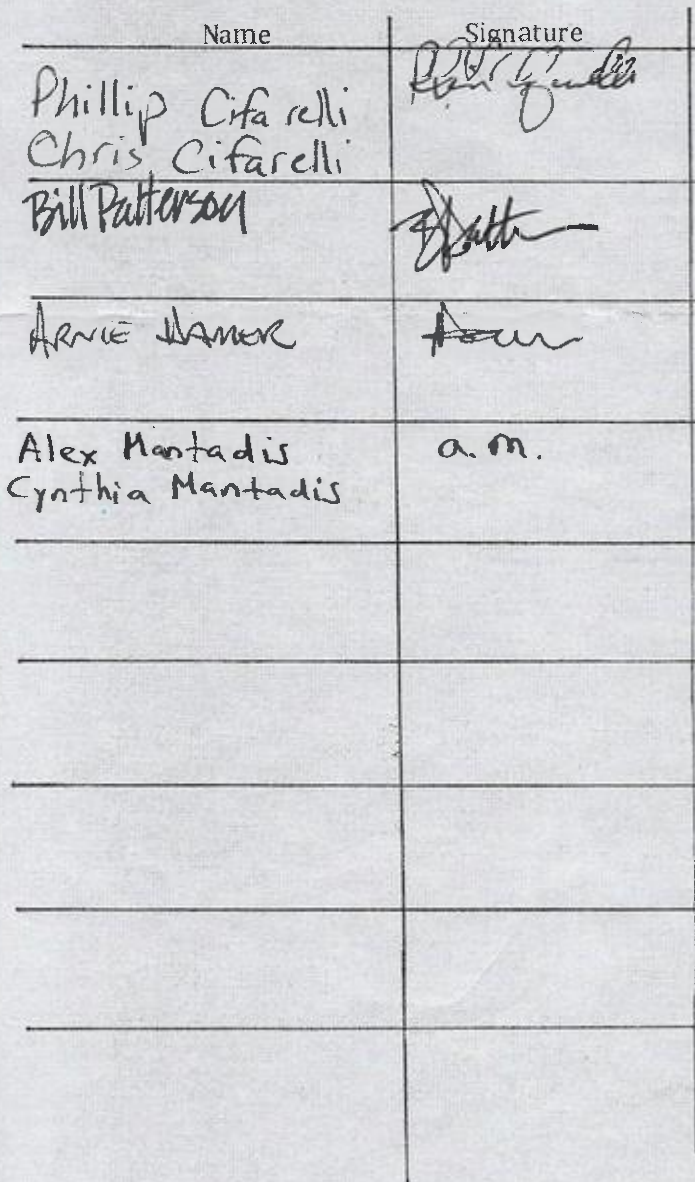 Name Signature
Phillip Cifarelli
Chris Cifarelli
Bill Patterson
ARNIE HAMER
Alex Mantadis a.m.
Cynthia Mantadis